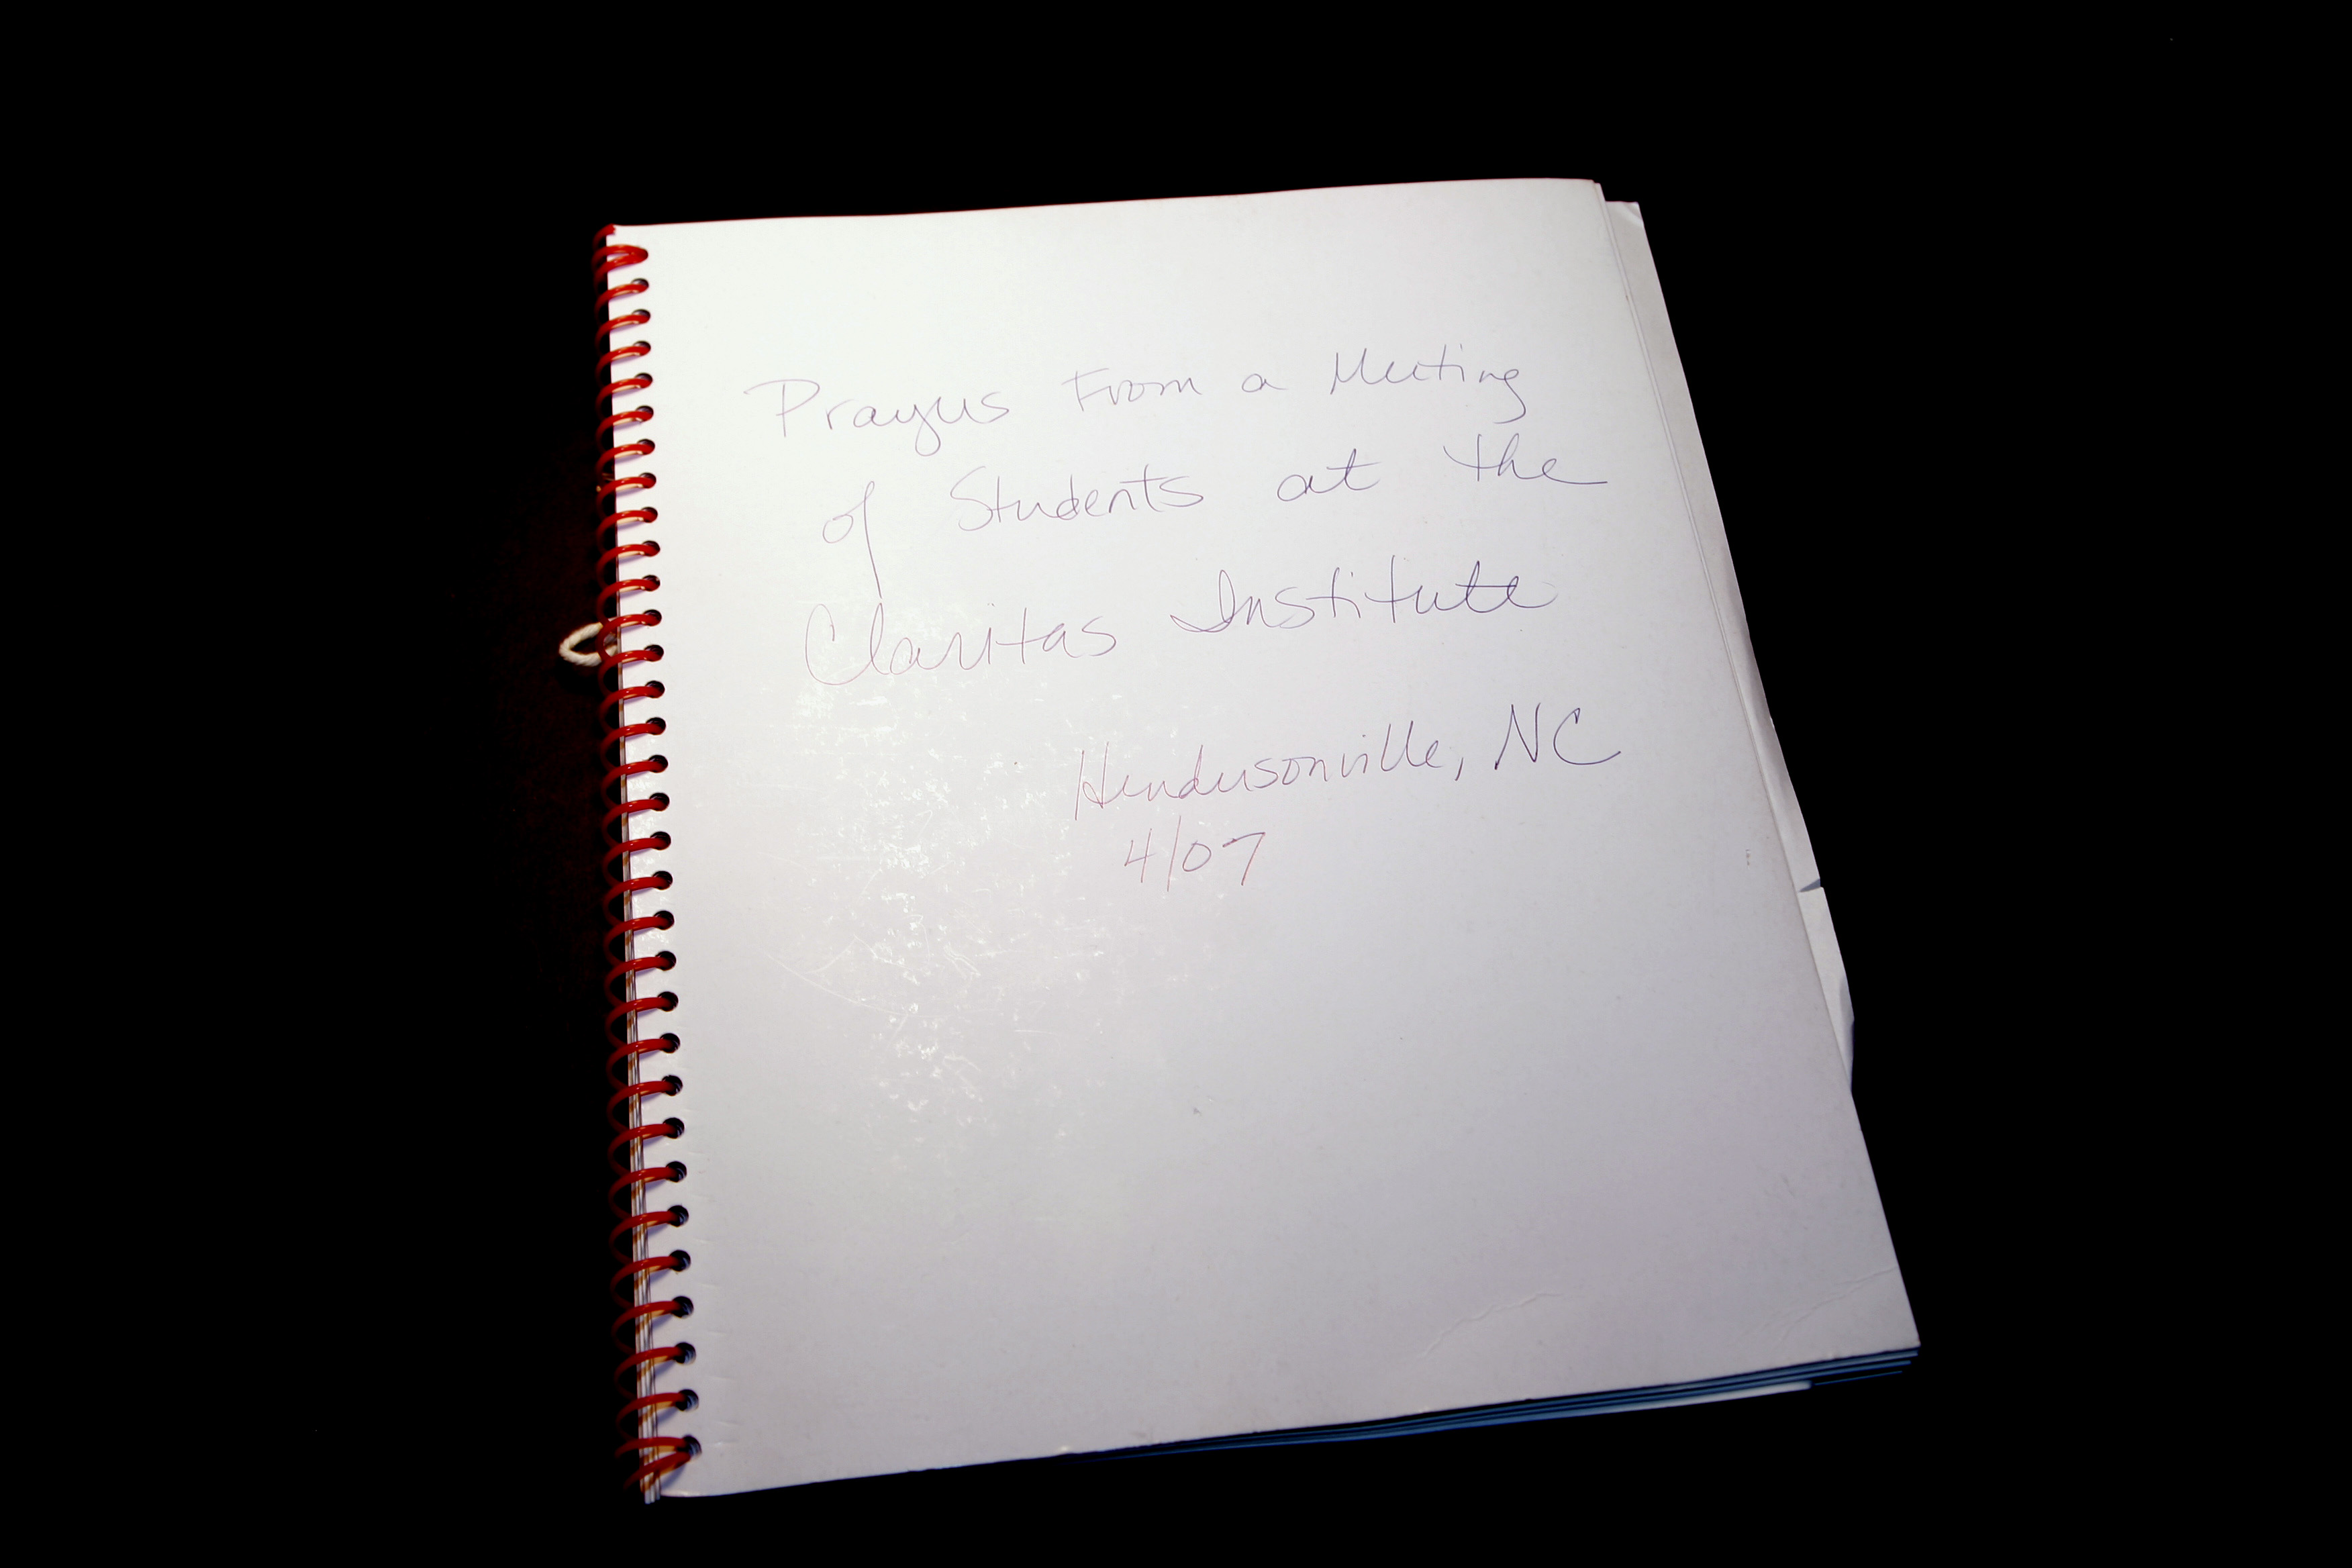 Prayers From a Meeting
of Students at the
Claritas Institute
Hendersonville, NC
4/07